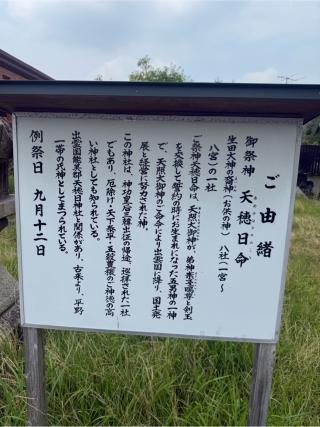 ご由緒
御祭神 天穂日命
生田大神の裔神(お供の神) 八社(一宮～
八宮)の一社
ご祭神天穂日命は、天照大御神が、弟神素盞嗚尊と剣玉
を交換して誓約の時にお生まれになった五男神の一神
で、天照大御神のご命令により出雲国に降り、国土発
展と経営に努力された神。
この神社は、神功皇后三韓出征の帰途、巡拝された一社
でもあり、厄除け・天下泰平・五穀豊穣のご神徳の高
い神社としても知られている。
出雲国能美郡天穂日神社と関係があり、古来より、平野
一帯の氏神としてまつられている。
例祭日 九月十二日